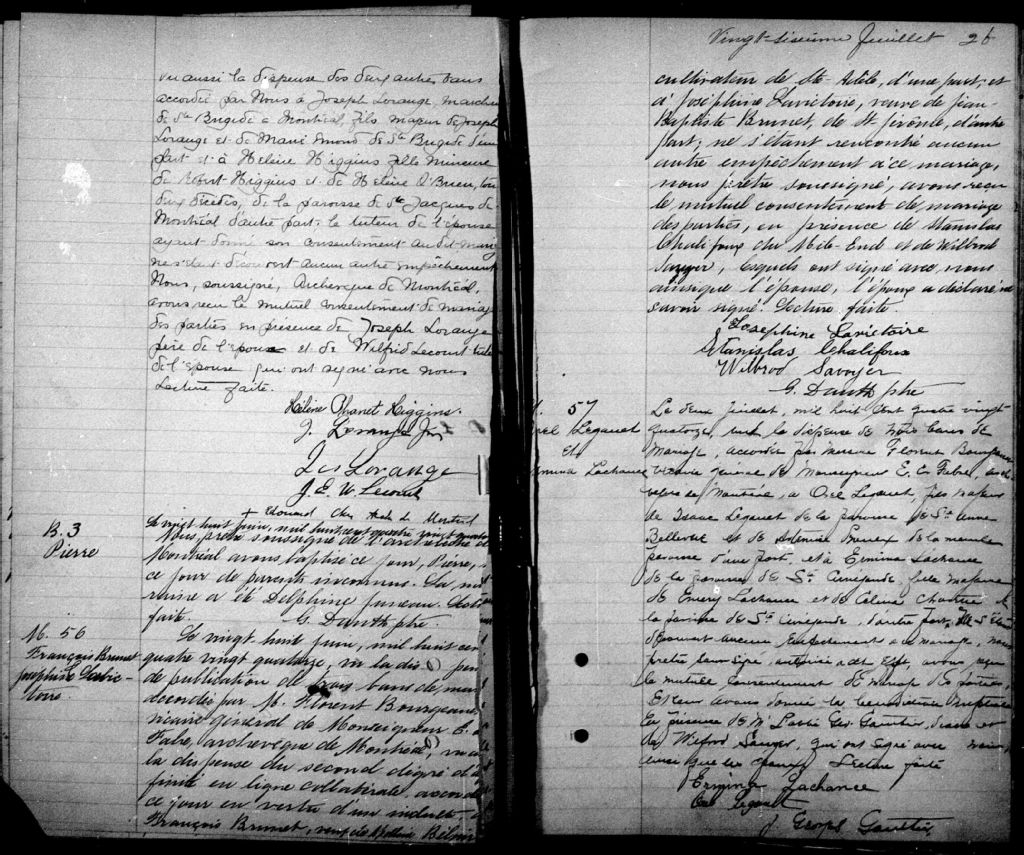 vu aussi la dispense des deux autres bans
accordée par Nous à Joseph Lorange, marchand
de Ste Brigide à Montréal, fils majeur de Joseph
Lorange et de Marie Imond de Ste Brigide d'une
part et à Helène Higgins fille mineure
de Robert Higgins et de Helène O'Brien, tous
deux décédés, de la paroisse de St Jacques de
Montréal d'autre part: le tuteur de l'épouse
ayant donné son consentement au dit mari
ne s'étant découvert aucun autre empêchement
Nous, soussigné, Archevêque de Montréal,
avons reçu le mutuel consentement de mariage
des parties en présence de Joseph Lorange
père de l'époux et de Wilfrid Lecourt
de l'épouse qui ont signé avec nous
Lecture faite.
Hélène Higgins.
J. Lorange Jnr
Jos Lorange
J. E. W. Lecourt
+ Edouard Chs Arch. de Montréal
B. 3
Pierre
Le vingt huit juin, mil huit cent quatre vingt quatorze
Nous, prêtre soussigné de l'archevêché de
Montréal avons baptisé ce jour, Pierre,
ce jour de parents inconnus. La mar
raine a été Delphine Juneau. Lecture
faite. G. Dauth ptre.
M. 56
François Brunet
Josephine Lavic-
toire
Le vingt huit juin, mil huit cent
quatre vingt quatorze, vu la dis
de publication de trois bans de mari
accordée par M. Florent Bourgeault
vicaire général de Monseigneur E. C.
Fabre, archevêque de Montréal, vu
la dispense du second dégré d'af
finité en ligne collatérale accordée
ce jour en vertu d'un indult, à
François Brunet, veuf de
Vingt-sixième Juillet 26
cultivateur de Ste-Adèle, d'une part, et
à Joséphine Lavictoire, veuve de Jean-
Baptiste Brunet, de St Jérôme, d'autre
part; ne s'étant rencontré aucun
autre empêchement à ce mariage,
nous prêtre soussigné, avons reçu
le mutuel consentement de mariage
des parties, en présence de Stanislas
Chalifoux du Mile-End et de Wilbrod
Savoyer, lesquels ont signé avec nous
ainsi que l'épouse, l'époux a déclaré ne
savoir signé. Lecture faite.
Josephine Lavictoire
Stanislas Chalifoux
Wilbrod Savoyer
G. Dauth ptre
57
Legault
et
Lachance
Le deux juillet, mil huit cent quatre vingt
quatorze, vu la dispense de trois bans de
mariage, accordée par Messire Florent Bourgeault
vicaire général de Monseigneur E. C. Fabre, arch
evêque de Montréal, à Legault, fils majeur
de Isaac Legault de la paroisse de Ste Anne
Bellevue et de de la meme
paroisse d'une part, et à Lachance
de la paroisse de St Cunégonde, fille majeure
de Lachance et de Célina Chartier de
la paroisse de Ste Cunégonde, d'autre part, ne s'étant
découvert aucun empêchement au mariage, nous
prêtre soussigné, autorisé à cet effet, avons reçu
le mutuel consentement de mariage des parties,
et leur avons donné la bénédiction nuptiale
en présence de Mr L'abbé Geo Gauthier, diacre et
de Wilfrod qui ont signé avec nous,
ainsi que les époux. Lecture faite
Lachance
Legault
J. Georges Gauthier